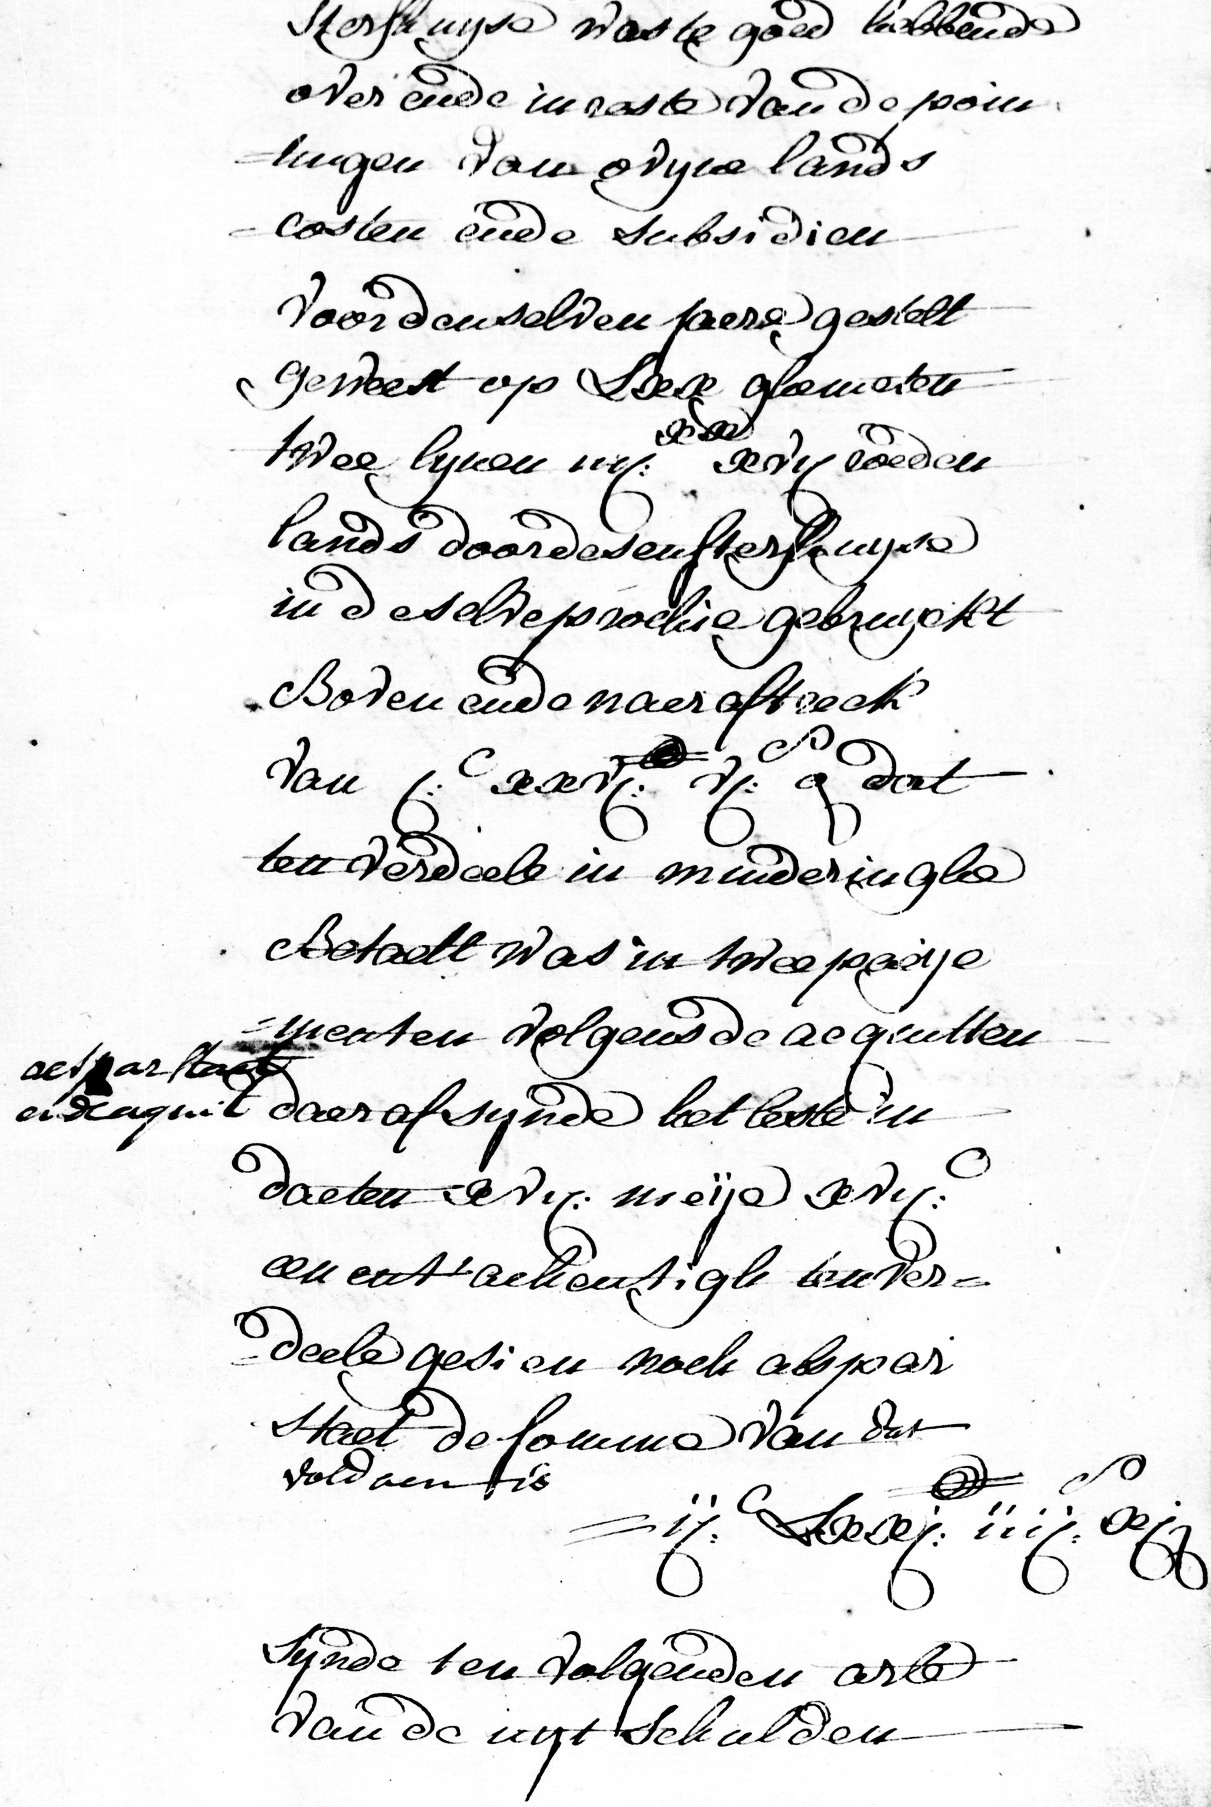 sterfhuyse vast te goed hebbende
over ende in reste van de poin
=tingen van ovyne lands
costen ende subsidien
voor den selven jaere gestelt
geweest op Lxx ghemeten
twee lynen iiij: xx xvij roeden
lands door desen sterfhuyse
in de selve prochie gebruyckt
Boven ende naer aftreck
van j: C xxvj: lb vj: s g dat
ten verdeele in minderinghe
Betaelt was in twee paeije
=menten volgens de acquitten
act par staet
ende aquit
daer af synde het leste in
daeten xvij: meije xvij: C
een ent' achentigh ten ver=
=deele gesien noch als par
staet de somme van dat
voldaen is
=ij: C Lxxj: lb iiij: s xj g
Synde ten volgenden arle
van de uyt schulden